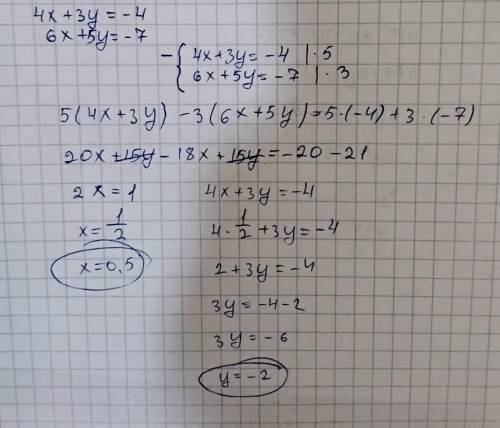 4x+3y=-4
6x+5y=-7
-{ 4x+3y=-4 | · 5
6x+5y=-7 | · 3
5(4x+3y) -3(6x+5y)=5·(-4)+3·(-7)
20x+15y-18x+15y=-20-21
2x=1
x=1/2
x=0,5
4x+3y=-4
4·1/2+3y=-4
2+3y=-4
3y=-4-2
3y=-6
y=-2